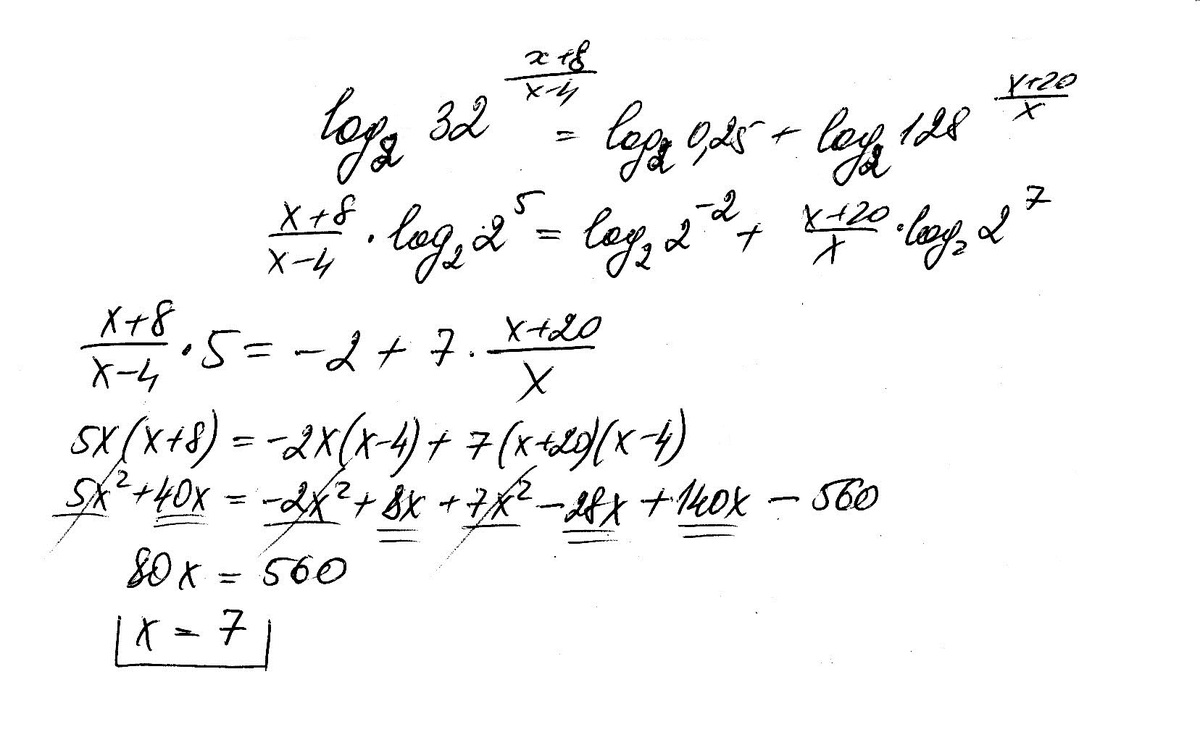 log₂ 32^((x+8)/(x-4)) = log₂ 0,25 + log₂ 128^((x+20)/x)
(x+8)/(x-4) · log₂ 2⁵ = log₂ 2⁻² + (x+20)/x · log₂ 2⁷
(x+8)/(x-4) · 5 = -2 + 7 · (x+20)/x
5x(x+8) = -2x(x-4) + 7(x+20)(x-4)
5x² + 40x = -2x² + 8x + 7x² - 28x + 140x - 560
80x = 560
x = 7